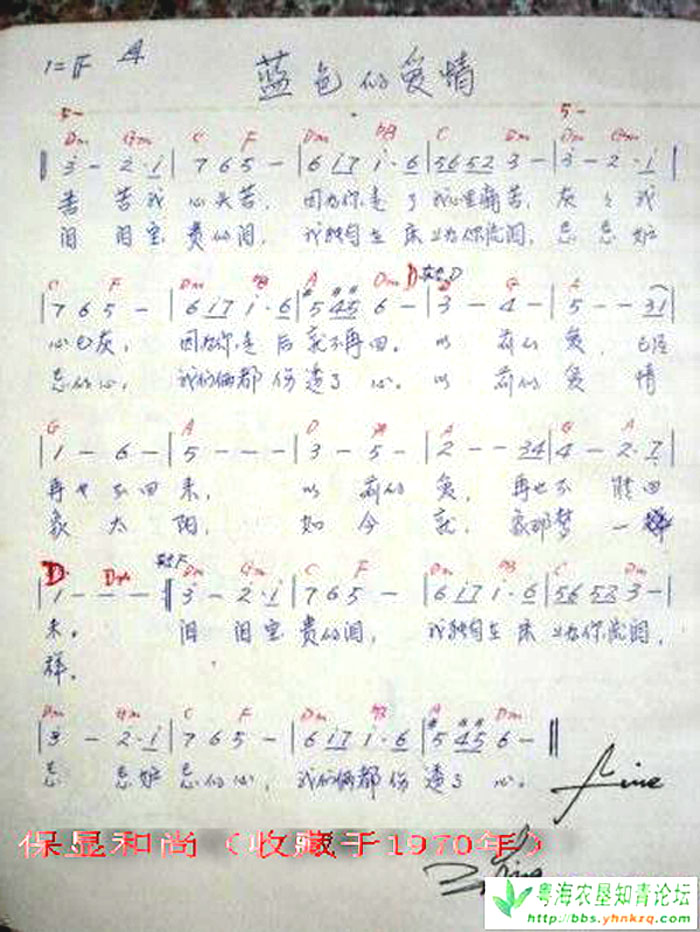 1=F 4/4
蓝色的爱情
5-
5-
Dm Gm C F Dm bB C Dm Dm Gm
‖ 3 - 2·i | 7 6 5 - | 6 i7 i·6 | 56 52 3 - | 3 - 2·i |
苦 苦我 心头苦, 因为你走了我心里痛苦, 灰 灰我
泪 泪宝 贵的泪, 我独自在床上为你流泪, 忘 忘妒
C F Dm bB A Dm D 转D G A
| 7 6 5 - | 6 i7 i·6 | #5 #4#5 6 - | 3 - 4 - | 5 - - 31 |
心已灰, 因为你走后就不再回。 以 前的 爱, 已经
忌的心, 我们俩都伤透了 心。 以 前的 爱 情
G A D A G A
| 1 - 6 - | 5 - - - | 3 - 5 - | 2 - - 34 | 4 - 2·7 |
再也不回 来, 以 前的 爱, 再也不 能回
象 太 阳, 如 今 就, 象那梦 一
D Dm 转F Dm Gm C F Dm bB C Dm
| 1 - - - ‖ 3 - 2·i | 7 6 5 - | 6 i7 i·6 | 56 52 3 - |
来。 泪 泪宝 贵的泪, 我独自在床上为你流泪,
样。
Dm Gm C F Dm bB A Dm
| 3 - 2·i | 7 6 5 - | 6 i7 i·6 | #5 #4#5 6 - ‖
忘 忘妒 忌的心, 我们俩都伤 透了 心。
Fine
保显和尚(收藏于1970年)
粤海农垦知青论坛
http://bbs.yhnkzq.com